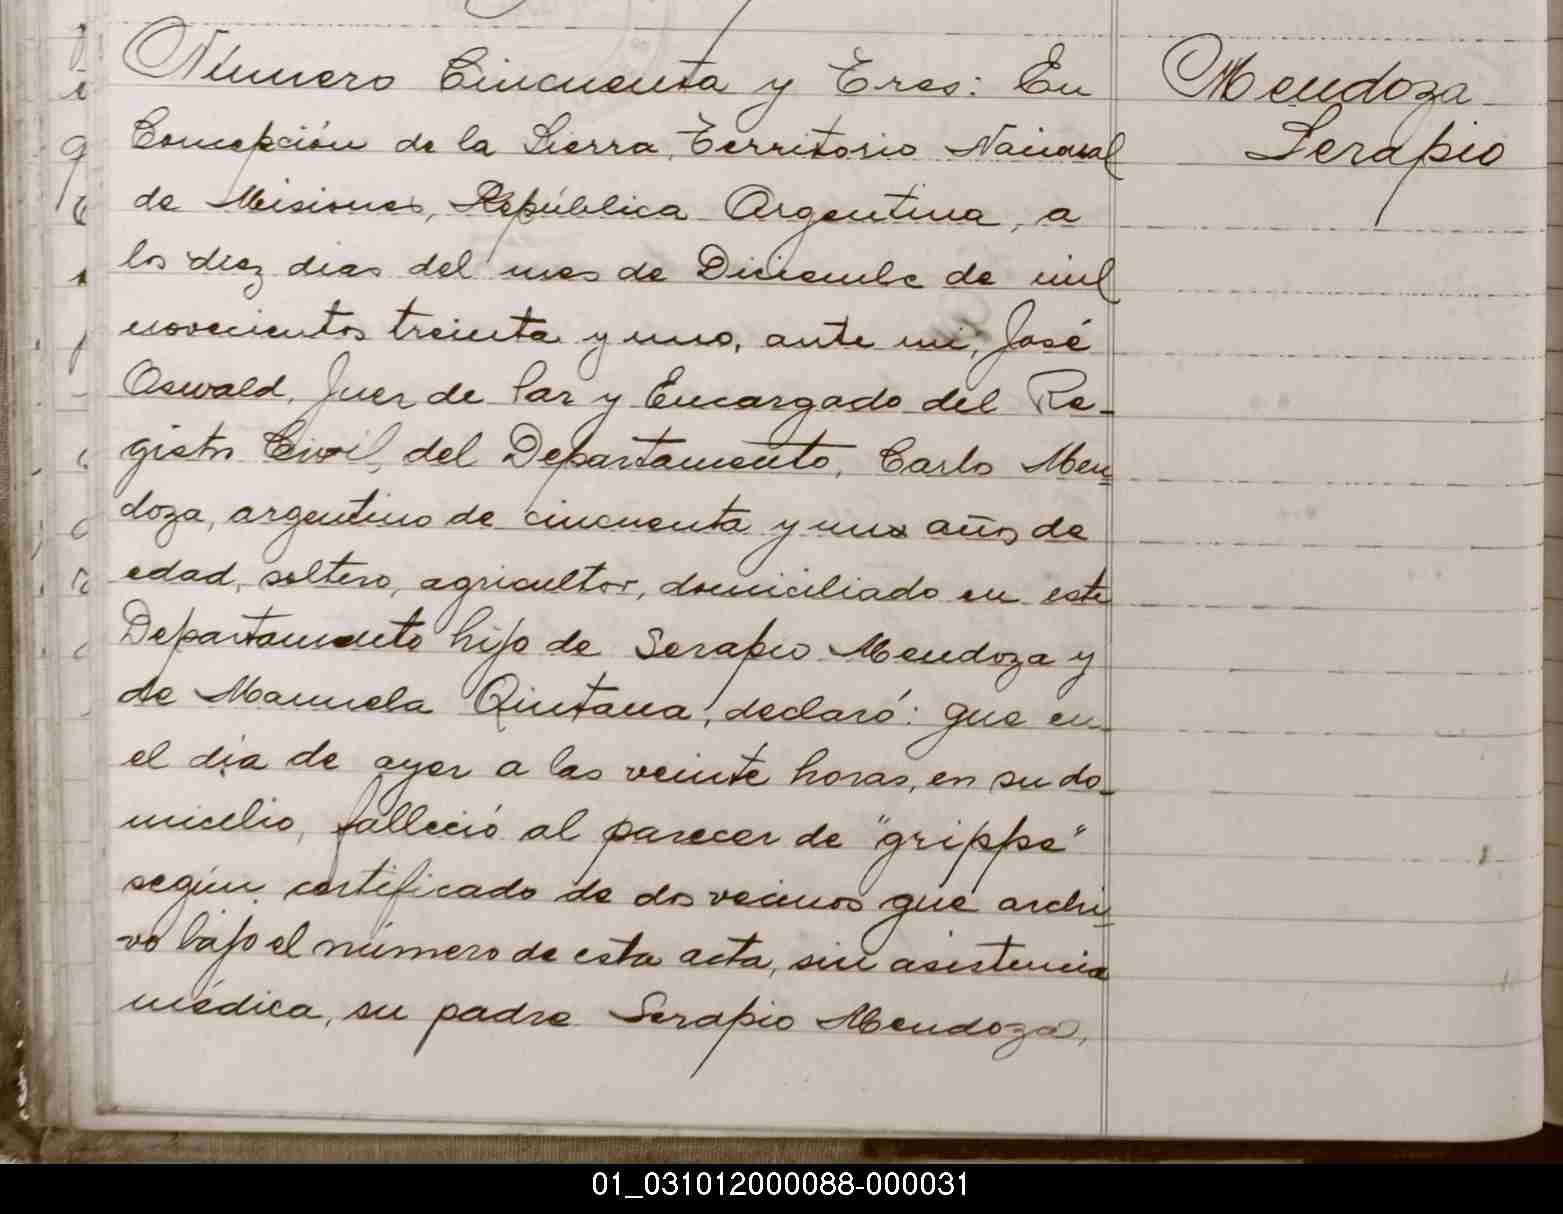 Número Cincuenta y Tres: En
Concepción de la Sierra, Territorio Nacional
de Misiones, República Argentina, a
los diez dias del mes de Diciembe de mil
novecientos treinta y uno, ante mi, José
Oswald, Juez de Paz y Encargado del Re-
gistro Civil, del Departamento, Carlos Men-
doza, argentino de cincuenta y uno años de
edad, soltero, agricultor, domiciliado en este
Departamento hijo de Serapio Mendoza y
de Manuela Quintana, declaró: que en
el día de ayer a las veinte horas, en su do-
micilio, falleció al parecer de "grippe"
según certificado de dos vecinos que archi-
vo bajo el número de esta acta, sin asistencia
médica, su padre Serapio Mendoza,
Mendoza
Serapio
01_031012000088-000031